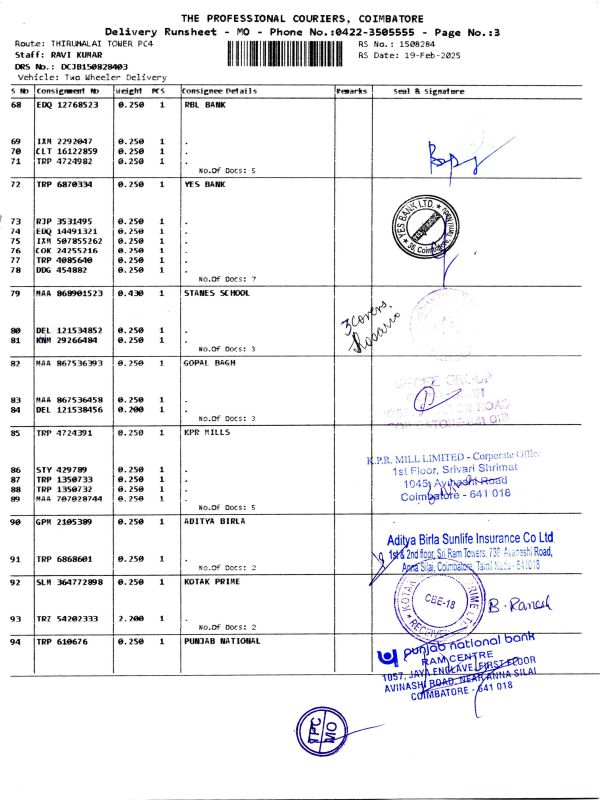 THE PROFESSIONAL COURIERS, COIMBATORE
Delivery Runsheet - MO - Phone No.:0422-3505555 - Page No.:3
Route: THIRUMALAI TOWER PC4 RS No.: 1508284
Staff: RAVI KUMAR RS Date: 19-Feb-2025
DRS No.: DCJB150828403
Vehicle: Two Wheeler Delivery
S No Consignment No Weight PCS Consignee Details Remarks Seal & Signature
68 EDQ 12768523 0.250 1 RBL BANK
69 IXM 2292047 0.250 1 .
70 CLT 16122859 0.250 1 .
71 TRP 4724982 0.250 1 .
No.Of Docs: 5
72 TRP 6870334 0.250 1 YES BANK
YES BANK LTD.
73 RJP 3531495 0.250 1 .
74 EDQ 14491321 0.250 1 .
75 IXM 507855262 0.250 1 .
76 COK 24255216 0.250 1 .
77 TRP 4085640 0.250 1 .
78 DDG 454882 0.250 1 .
No.Of Docs: 7
79 MAA 868901523 0.430 1 STANES SCHOOL
3 Covers.
Rosario
80 DEL 121534852 0.250 1 .
81 KNM 29266484 0.250 1 .
No.Of Docs: 3
82 MAA 867536393 0.250 1 GOPAL BAGH
GROUP
83 MAA 867536458 0.250 1 .
84 DEL 121538456 0.200 1 .
No.Of Docs: 3
85 TRP 4724391 0.250 1 KPR MILLS
K.P.R. MILL LIMITED - Corporate Office
1st Floor, Srivari Shrimat
1045, Avinashi Road
Coimbatore - 641 018
86 STY 429789 0.250 1 .
87 TRP 1350733 0.250 1 .
88 TRP 1350732 0.250 1 .
89 MAA 707028744 0.250 1 .
No.Of Docs: 5
90 GPM 2105389 0.250 1 ADITYA BIRLA
Aditya Birla Sunlife Insurance Co Ltd
1st & 2nd floor, Sri Ram Towers, 739 Avanashi Road,
Anna Silai, Coimbatore, Tamil Nadu - 641018
91 TRP 6868601 0.250 1 .
No.Of Docs: 2
92 SLM 364772898 0.250 1 KOTAK PRIME
KOTAK PRIME LTD
CBE-18
RECEIVED
B. Ramesh
93 TRZ 54202333 2.200 1 .
No.Of Docs: 2
94 TRP 610676 0.250 1 PUNJAB NATIONAL
punjab national bank
RAM CENTRE
1057, JAYA ENCLAVE, FIRST FLOOR
AVINASHI ROAD, NEAR ANNA SILAI
COIMBATORE - 641 018
TPC
MO